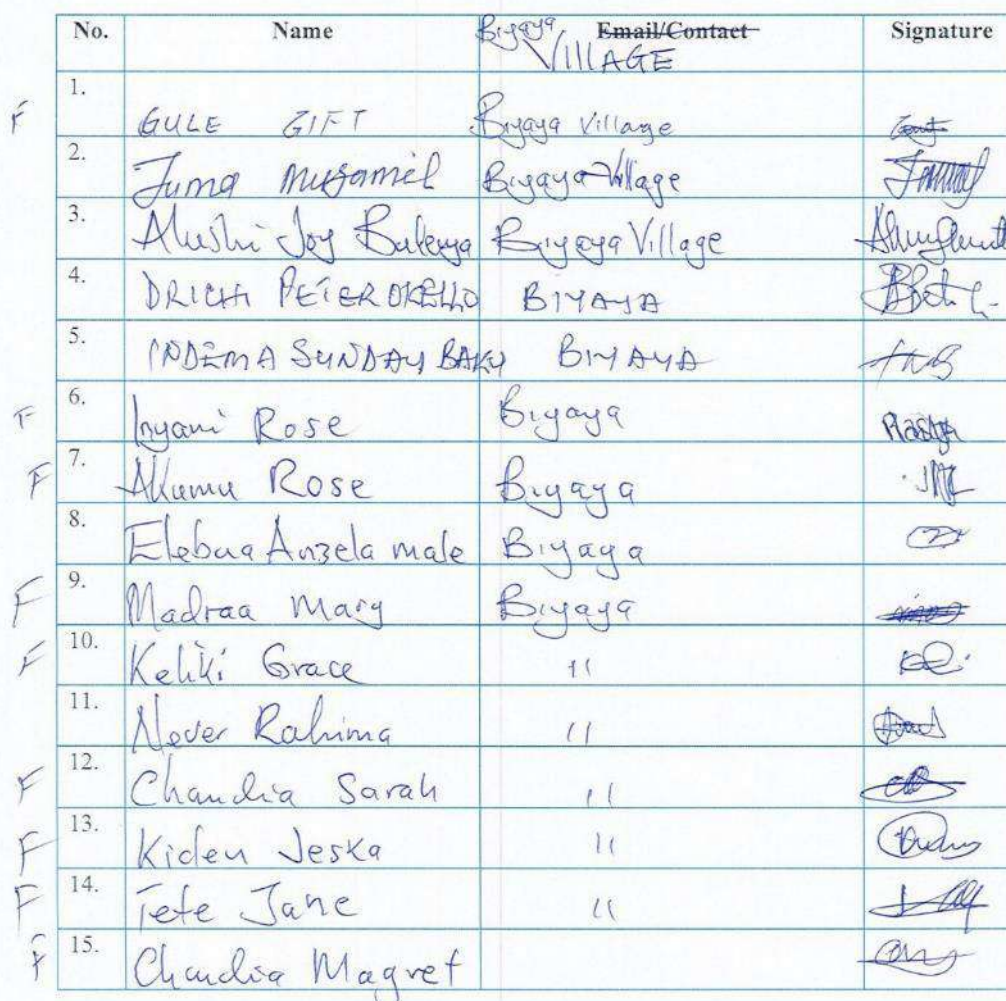 No. Name Biyaya Email/Contact Signature
VILLAGE
1.
F GULE GIFT Biyaya Village
2.
Juma Muzamil Biyaya Village
3.
Alushi Joy Butenya Biyaya Village
4.
DRICHI PETER OKELLO BIYAYA
5.
INDEMA SUNDAY BAKU BIYAYA
6.
F Inyani Rose Biyaya
7.
F Akumu Rose Biyaya
8.
Elebua Anzela male Biyaya
9.
F Madraa Mary Biyaya
10.
F Keliki Grace "
11.
Never Rahima "
12.
F Chandia Sarah "
13.
F Kiden Jeska "
14.
F Tete Jane "
15.
F Chandia Magret